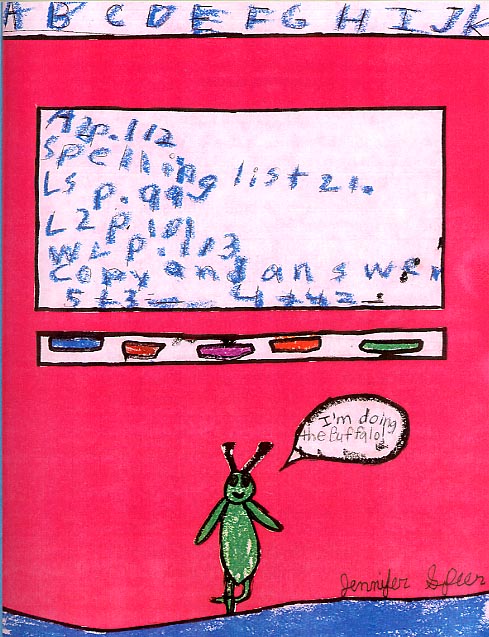 A B C D E F G H I J K
p.112
Spelling list 21.
LS p.99
L2 p.101
p.
Copy and answer
5+3=
I'm doing
the Buffalo!
Jennifer